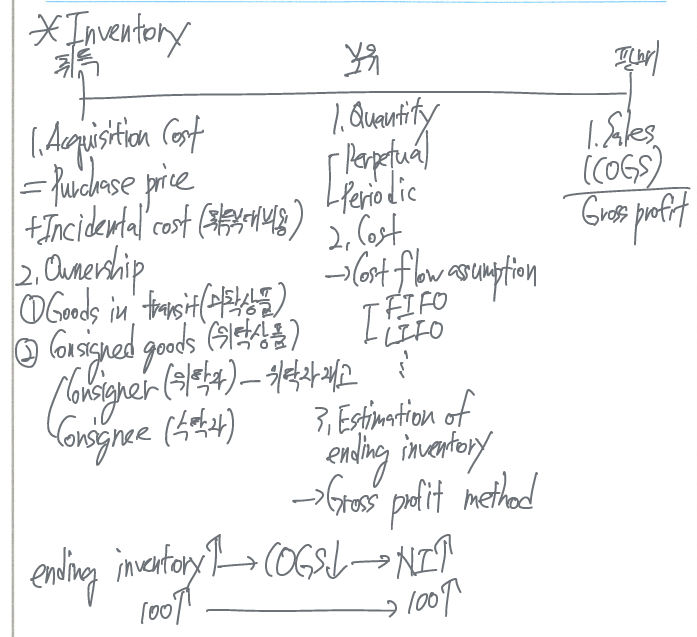 * Inventory
취득
보유
판매
1. Acquisition Cost
= Purchase price
+ Incidental cost (취득부대비용)
2. Ownership
① Goods in transit (미착상품)
② Consigned goods (위탁상품)
Consigner (위탁자) – 위탁자 재고
Consignee (수탁자)
1. Quantity
Perpetual
Periodic
2. Cost
→ Cost flow assumption
FIFO
LIFO
⋮
3. Estimation of
ending inventory
→ Gross profit method
1. Sales
(COGS)
Gross profit
ending inventory↑ → COGS↓ → NI↑
100↑ → 100↑